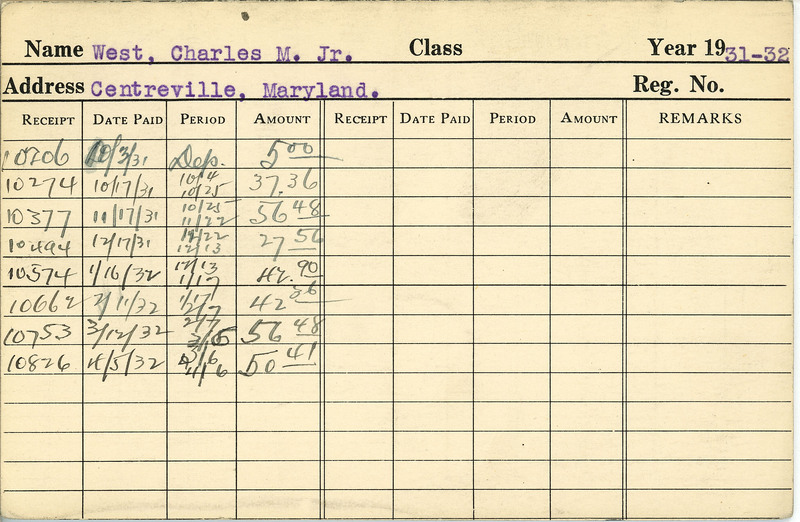 Name West, Charles M. Jr. Class Year 1931-32
Address Centreville, Maryland. Reg. No.
RECEIPT DATE PAID PERIOD AMOUNT RECEIPT DATE PAID PERIOD AMOUNT REMARKS
10206 10/3/31 Dep. 5 00
10274 10/17/31 10/4 10/25 37.36
10377 11/17/31 10/25 11/22 56 48
10494 12/17/31 11/22 12/13 27 56
10574 1/16/32 12/13 1/17 42.90
10662 2/11/32 1/17 2/7 42 36
10753 3/12/32 2/7 3/6 56 48
10826 4/5/32 3/6 4/6 50 41